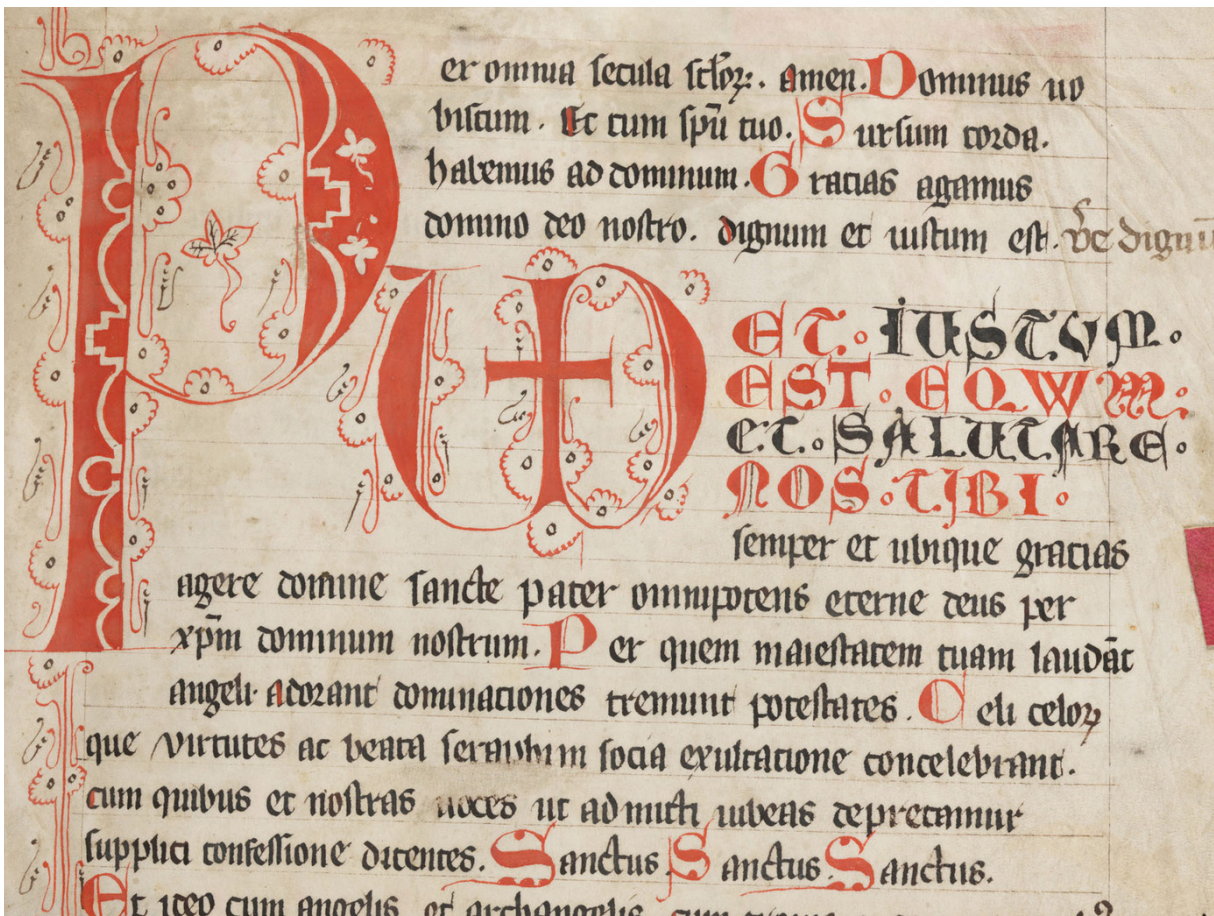 Per omnia secula sclorꝝ. amen. Dominus uo
biscum. Et cum spū tuo. Sursum corda.
habemus ad dominum. Gracias agamus
domino deo nostro. dignum et iustum est. Ve dignū
ET. IUSTVM.
EST. EQVVM:
ET. SALUTARE.
NOS. TIBI.
semper et ubique gracias
agere domine sancte pater omnipotens eterne deus per
xp̄m dominum nostrum. Per quem maiestatem tuam laudāt
angeli. adorant dominaciones tremunt potestates. Celi celoꝝ
que virtutes ac beata seraphim socia exultacione concelebrant.
cum quibus et nostras uoces ut admitti iubeas deprecamur
supplici confessione dicentes. Sanctus Sanctus. Sanctus.
Et ideo cum angelis et archangelis cum